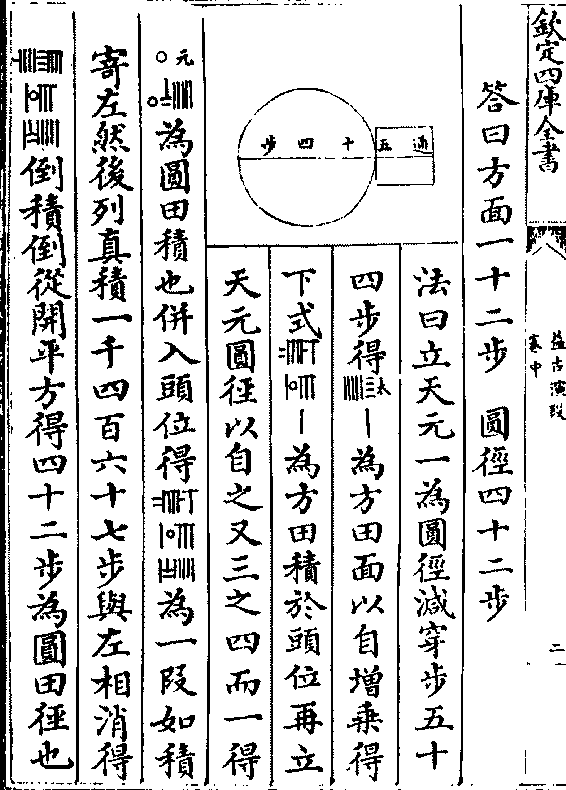 欽定四庫全書
益古演段
卷中
二
答曰方面一十二步 圓徑四十二步
通五十四步
法曰立天元一為圓徑減穿步五十
四步得太為方田面以自增乗得
下式為方田積於頭位再立
天元圓徑以自之又三之四而一得
元為圓田積也併入頭位得為一段如積
寄左然後列真積一千四百六十七步與左相消得
倒積倒從開平方得四十二步為圓田徑也